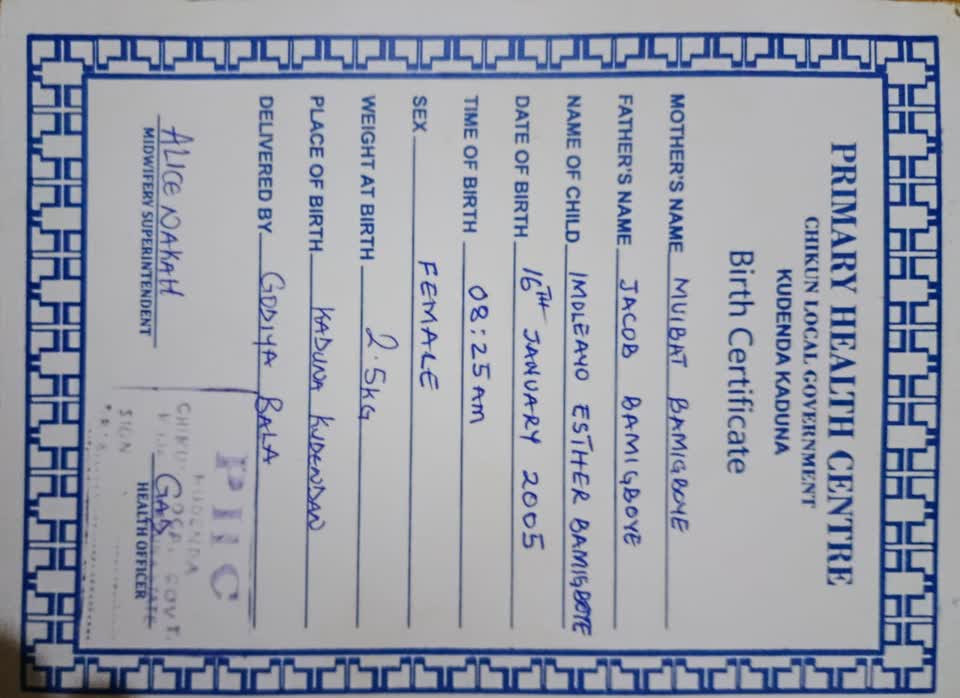 PRIMARY HEALTH CENTRE
CHIKUN LOCAL GOVERNMENT
KUDENDA KADUNA
Birth Certificate
MOTHER'S NAME MUIBAT BAMIGBOYE
FATHER'S NAME JACOB BAMIGBOYE
NAME OF CHILD IMOLEAYO ESTHER BAMIGBOYE
DATE OF BIRTH 16TH JANUARY 2005
TIME OF BIRTH 08:25AM
SEX FEMALE
WEIGHT AT BIRTH 2.5KG
PLACE OF BIRTH KADUNA KUDENDAN
DELIVERED BY GODIYA BALA
PHC
KUDENDA
LOCAL GOVT.
SIGN
ALICE NAKAH
MIDWIFERY SUPERINTENDENT
HEALTH OFFICER